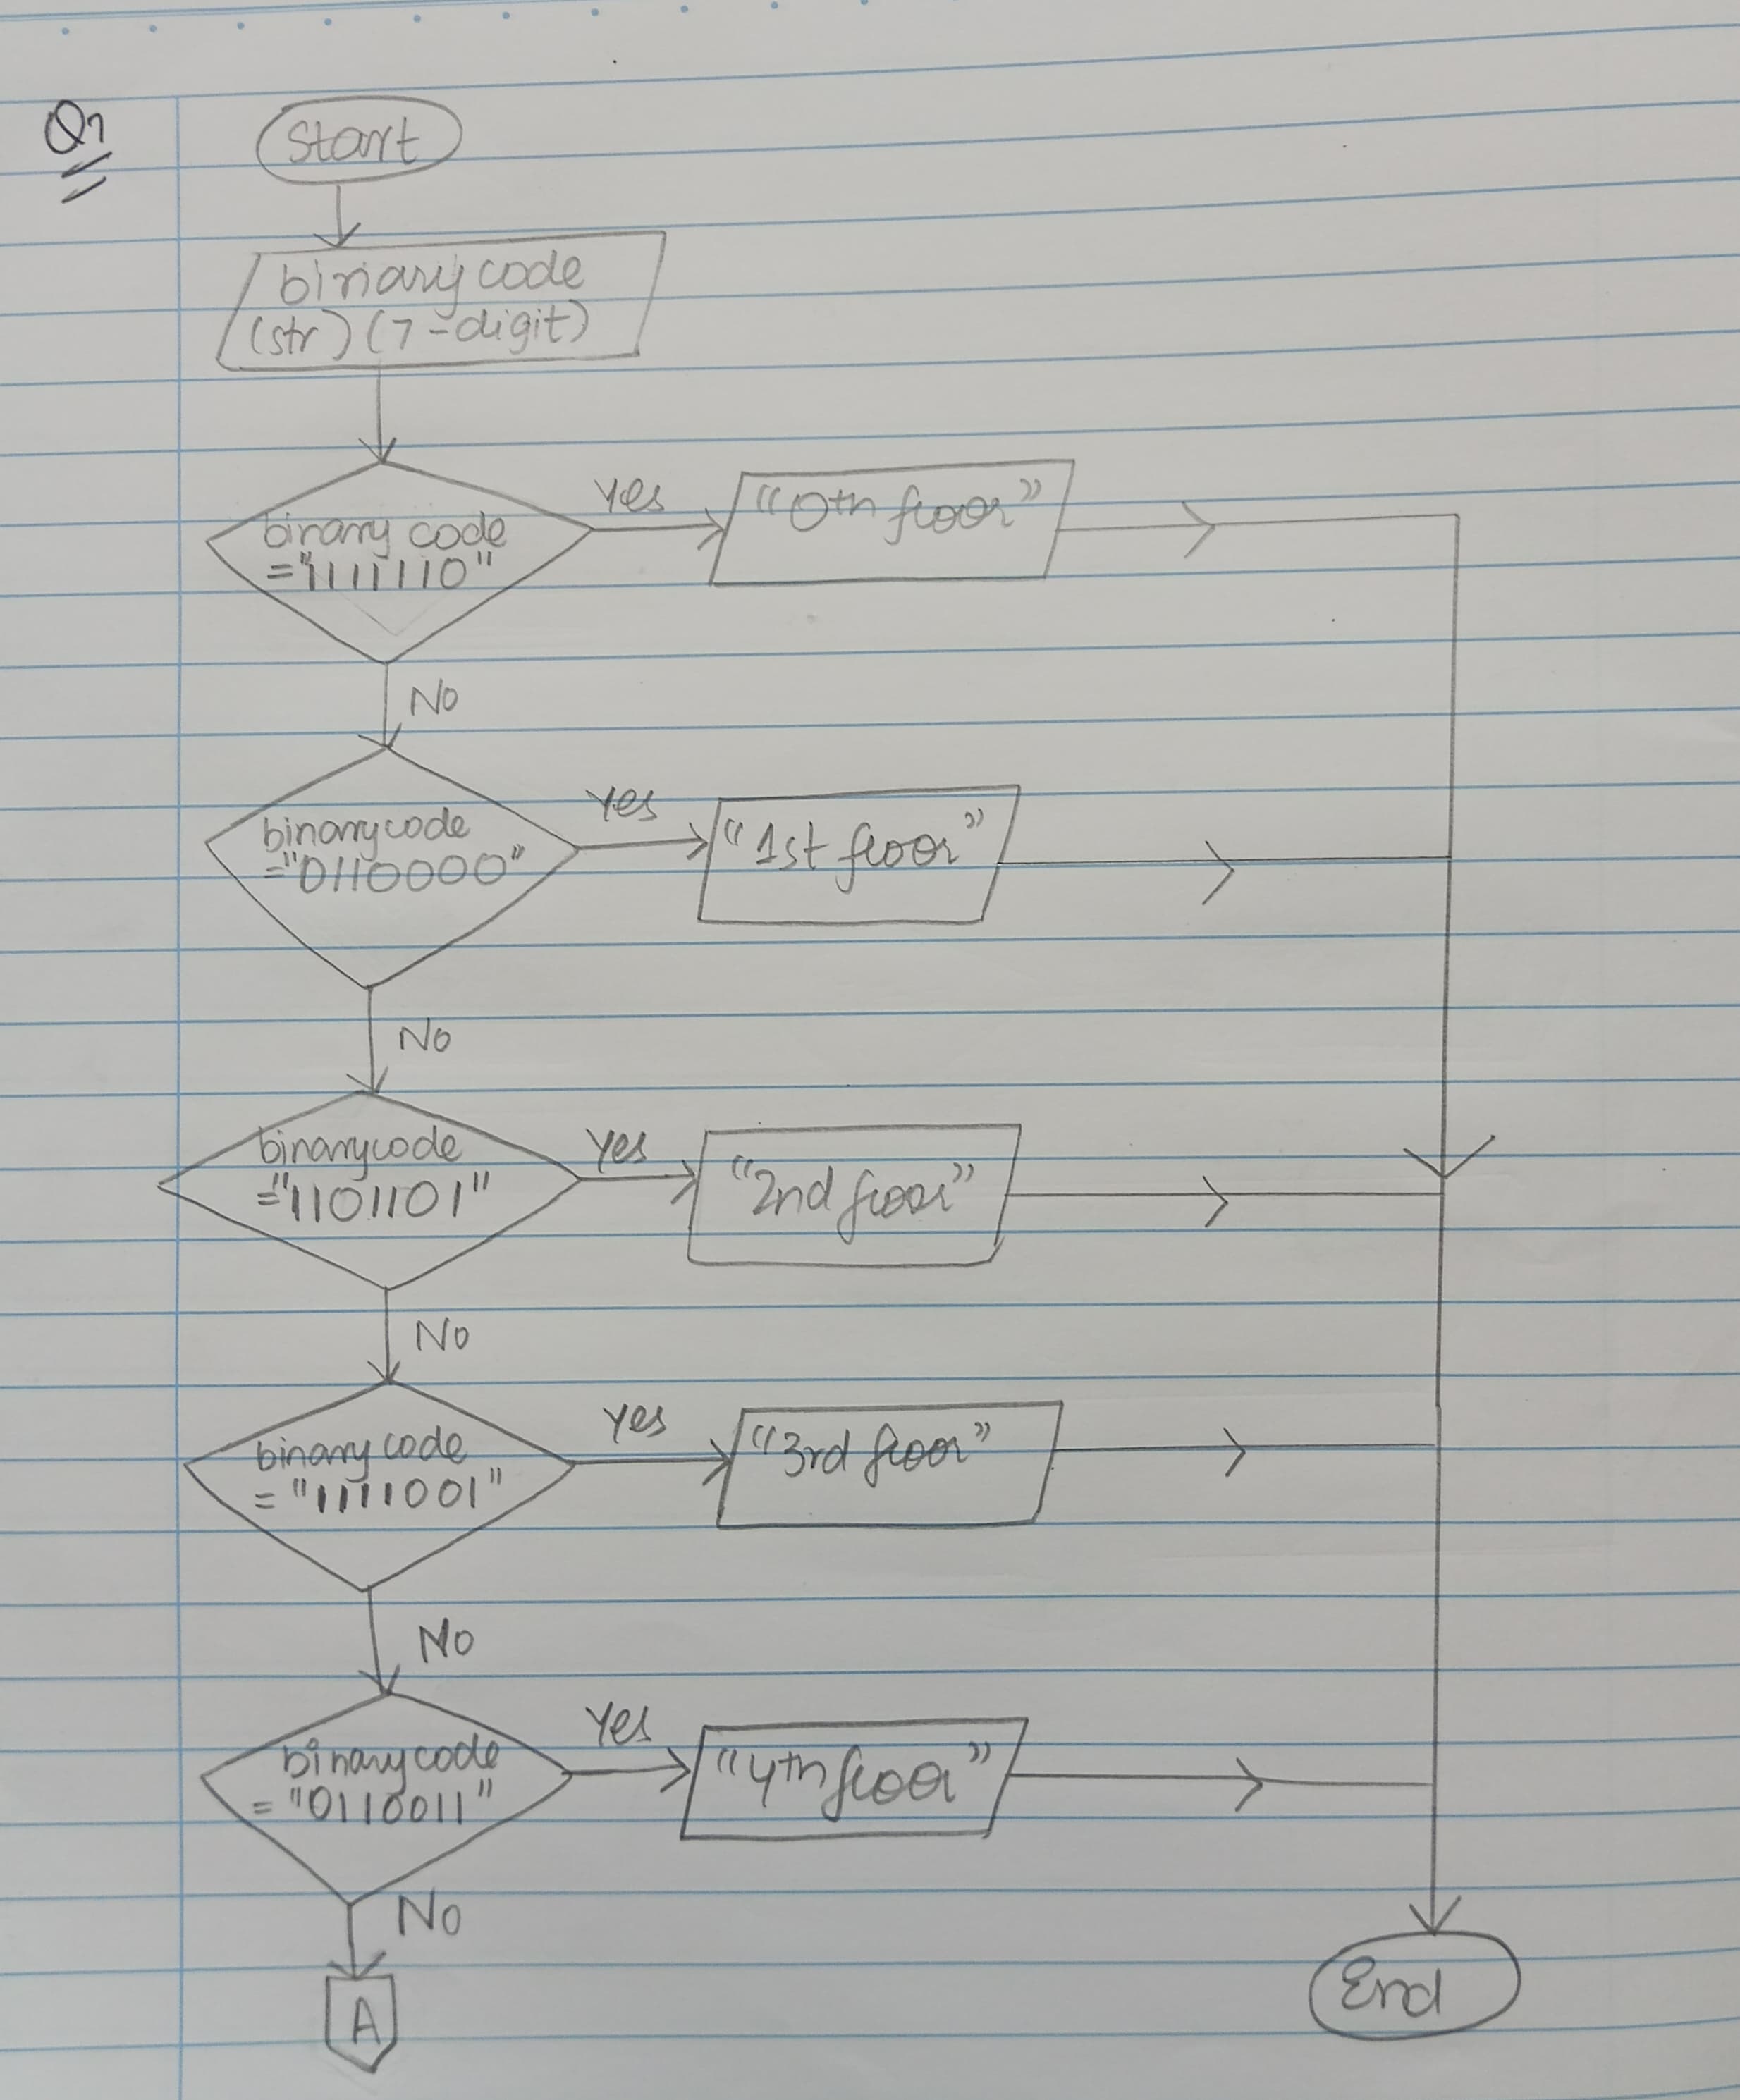 Q7
Start
binary code
(str) (7-digit)
binary code
="1111110"
Yes
"0th floor"
No
binarycode
="0110000"
Yes
"1st floor"
No
binarycode
="1101101"
Yes
"2nd floor"
No
binary code
= "1111001"
Yes
"3rd floor"
No
binarycode
= "0110011"
Yes
"4th floor"
No
A
End